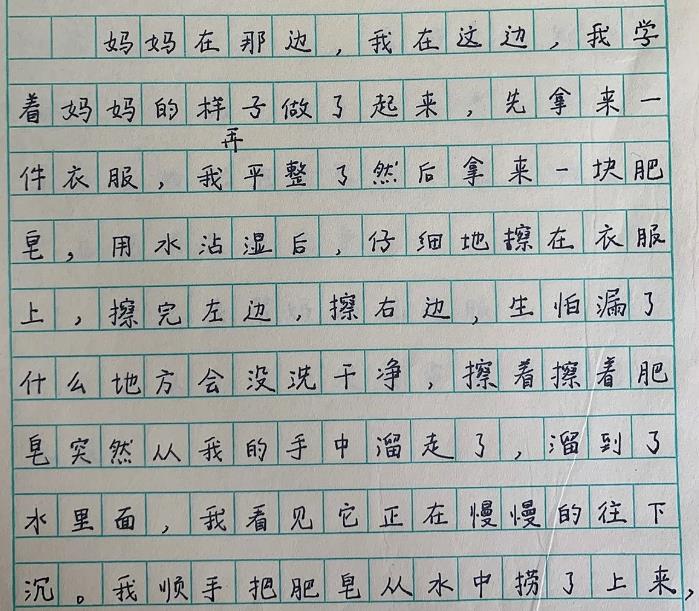 妈妈在那边，我在这边，我学
着妈妈的样子做了起来，先拿来一
件衣服，我再平整了然后拿来一块肥
皂，用水沾湿后，仔细地擦在衣服
上，擦完左边，擦右边，生怕漏了
什么地方会没洗干净，擦着擦着肥
皂突然从我的手中溜走了，溜到了
水里面，我看见它正在慢慢的往下
沉。我顺手把肥皂从水中捞了上来，